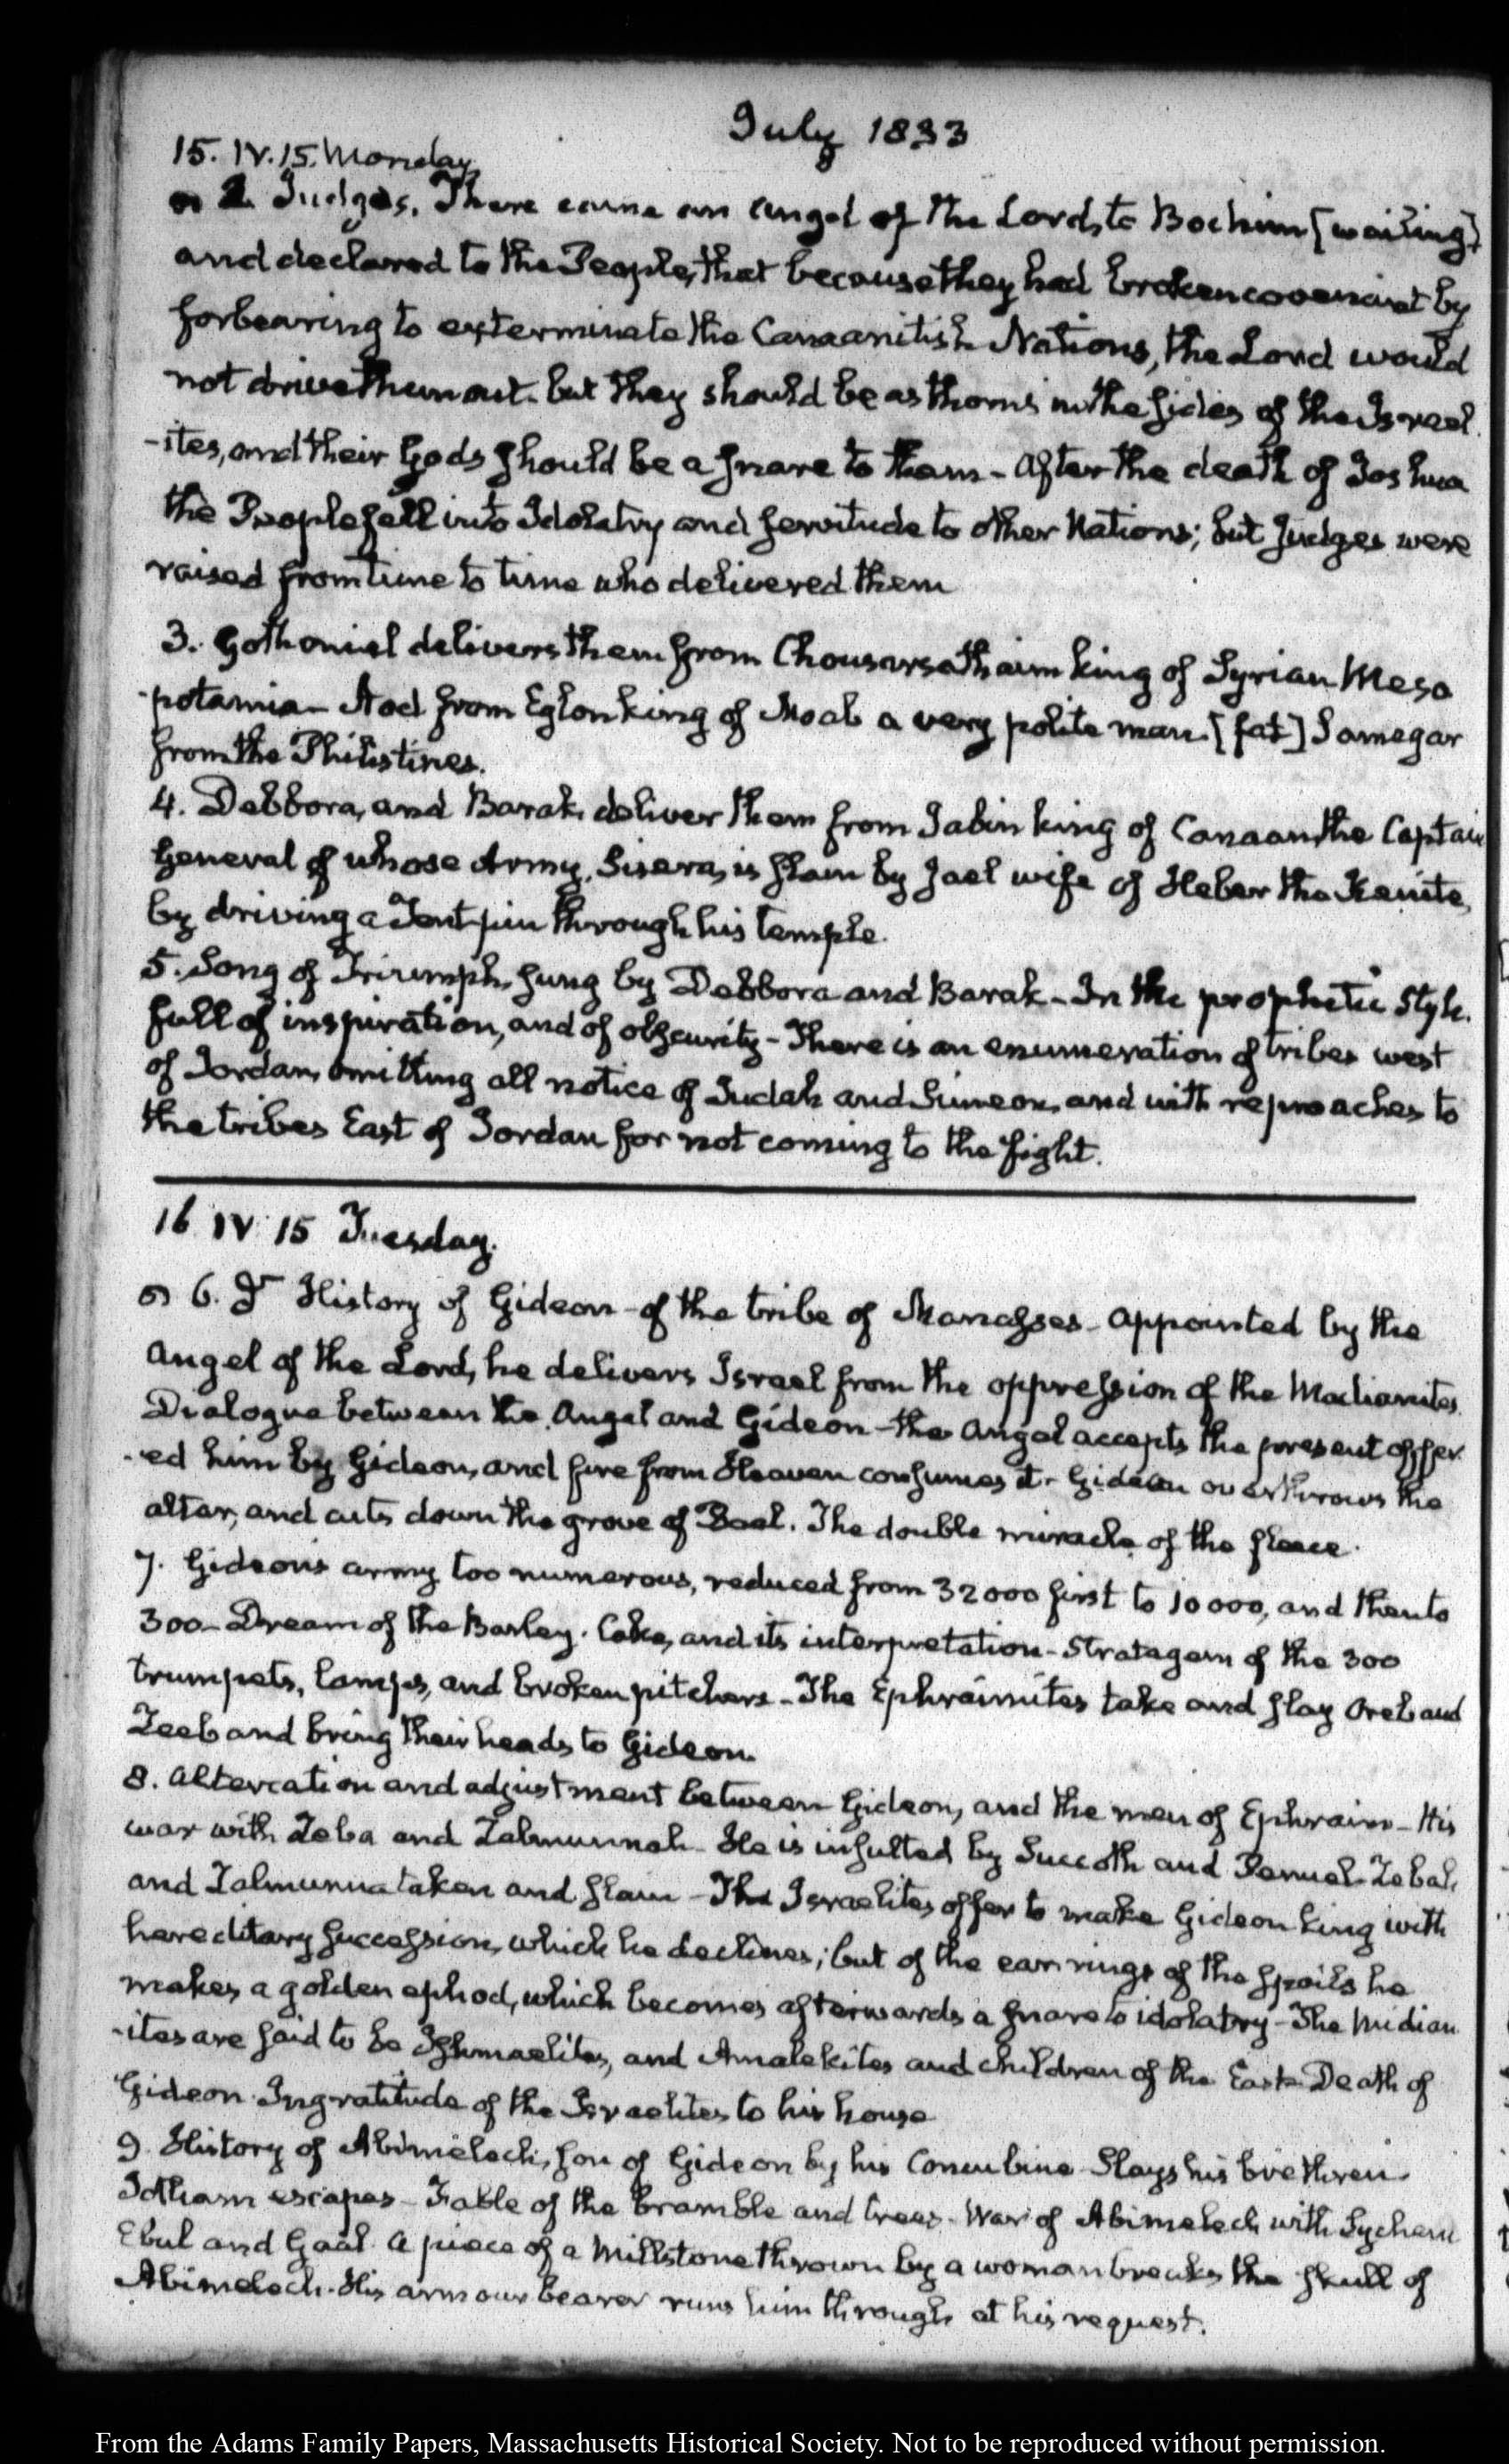 July 1833
15. IV. 15. Monday
2. Judges. There came an angel of the Lord, to Bochim [wailing]
and declared to the People, that because they had broken covenant by
forbearing to exterminate the Canaanitish Nations, the Lord would
not drive them out. but they should be as thorns in the sides of the Israel
-ites, and their Gods should be a snare to them - After the death of Joshua
the People fell into Idolatry and servitude to other Nations; but Judges were
raised from time to time who delivered them
3. Gothoniel delivers them from Chousarsathaim king of Syrian Meso
-potamia - Aod from Eglon king of Moab a very polite man. [fat] Samegar
from the Philistines.
4. Debbora, and Barak deliver them from Jabin king of Canaan, the Captain
General of whose Army, Sisera, is slain by Jael wife of Heber the Kenite,
by driving a Tent pin through his temple.
5. Song of Triumph, sung by Debbora and Barak - In the prophetic Style.
full of inspiration, and of obscurity - There is an enumeration of tribes west
of Jordan, omitting all notice of Judah and Simeon, and with reproaches to
the tribes East of Jordan for not coming to the fight.
16 IV 15 Tuesday.
6. History of Gideon - of the tribe of Manasses - appointed by the
Angel of the Lord, he delivers Israel from the oppression of the Madianites
Dialogue between the Angel and Gideon - the Angel accepts the present offer
-ed him by Gideon, and fire from Heaven consumes it - Gideon overthrows the
altar, and cuts down the grove of Baal. The double miracle of the fleece.
7. Gideon's army too numerous, reduced from 32000 first to 10000, and then to
300 - Dream of the Barley-Cake, and its interpretation - Stratagem of the 300
trumpets, lamps, and broken pitchers - The Ephraimites take and slay Oreb and
Zeeb and bring their heads to Gideon.
8. Altercation and adjustment between Gideon, and the men of Ephraim - His
war with Zeba and Zalmunnah - He is insulted by Succoth and Penuel - Zebah
and Zalmunna taken and slain - The Israelites offer to make Gideon king with
hereditary succession, which he declines; but of the earrings of the spoils he
makes a golden ephod, which becomes afterwards a snare to idolatry - The Midian
-ites are said to be Ishmaelites, and Amalekites and children of the East - Death of
Gideon Ingratitude of the Israelites to his house
9. History of Abimelech, son of Gideon by his Concubine Slays his brethren
Jotham escapes - Fable of the bramble and trees - War of Abimelech with Sychem
Ebul and Gaal. A piece of a Millstone thrown by a woman breaks the skull of
Abimelech. His armour bearer runs him through at his request.
From the Adams Family Papers, Massachusetts Historical Society. Not to be reproduced without permission.